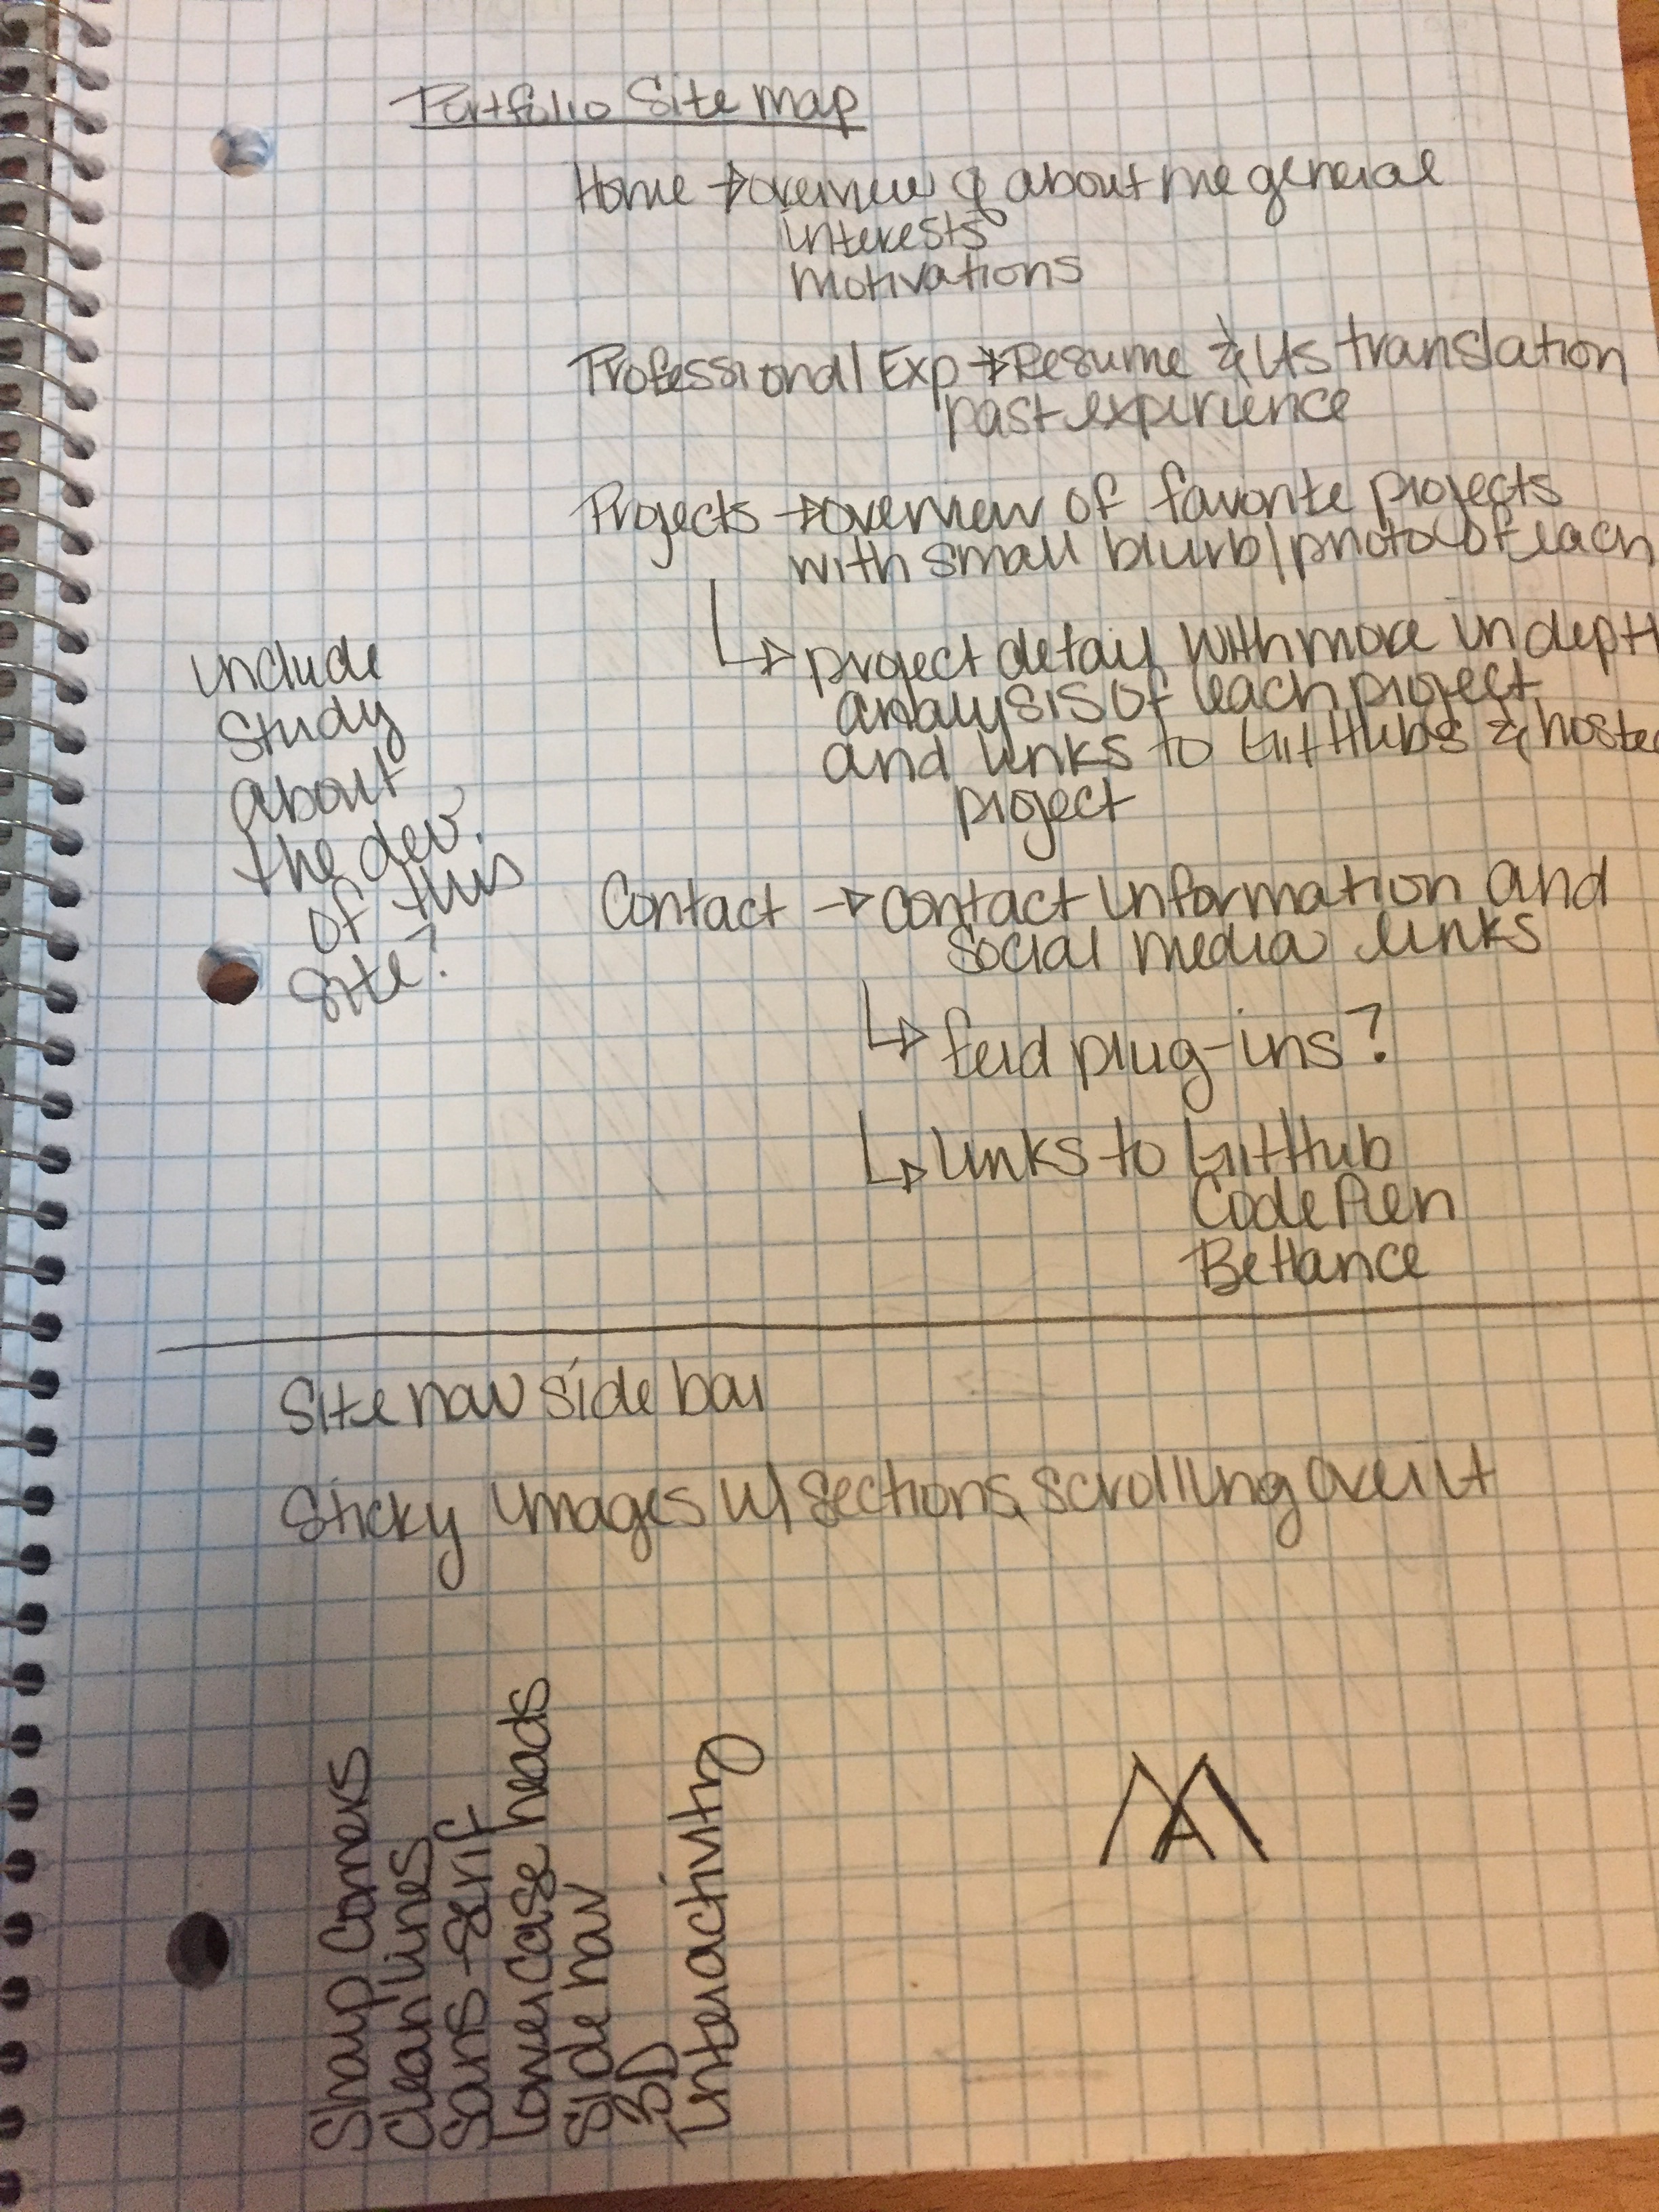 Portfolio Site Map
Home → overview & about me general
interests
motivations
Professional Exp → Resume & its translation
past experience
Projects → overview of favorite projects
with small blurb/photo of each
↳ project detail with more in depth
analysis of each project
and links to GitHubs & hosted
project
include
study
about
the dev.
of this
site?
Contact → contact information and
social media links
↳ feed plug-ins?
↳ links to GitHub
CodePen
BeHance
Site nav side bar
Sticky images w/ sections scrolling over it
Sharp Corners
Clean lines
Sans-serif
Lowercase heads
Side nav
3D
Interactivity
MA